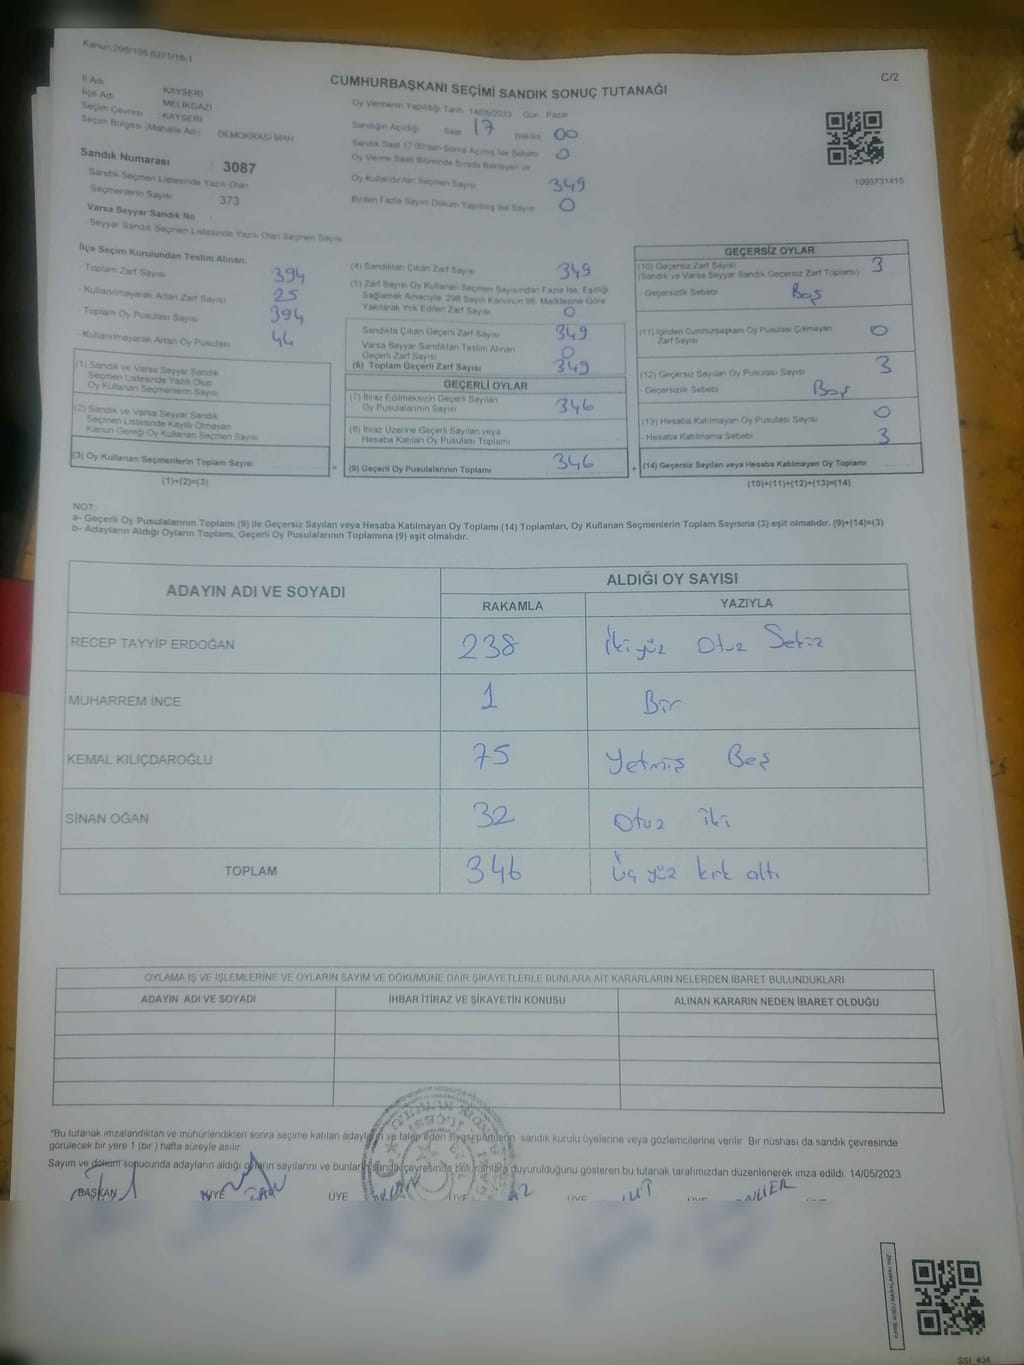 Kanun:298/105-6271/18-1
C/2
CUMHURBAŞKANI SEÇİMİ SANDIK SONUÇ TUTANAĞI
İl Adı : KAYSERİ
İlçe Adı : MELİKGAZİ
Seçim Çevresi : KAYSERİ
Seçim Bölgesi (Mahalle Adı) : DEMOKRASİ MAH
Sandık Numarası : 3087
Sandık Seçmen Listesinde Yazılı Olan
Seçmenlerin Sayısı : 373
Varsa Seyyar Sandık No :
Seyyar Sandık Seçmen Listesinde Yazılı Olan Seçmen Sayısı
Oy Vermenin Yapıldığı Tarih 14/05/2023 Gün Pazar
Sandığın Açıldığı Saat 17 Dakika 00
Sandık Saat 17:00'den Sonra Açılmış İse Sebebi 0
Oy Verme Saati Bitiminde Sırada Bekleyen ve
Oy Kullandırılan Seçmen Sayısı 349
Birden Fazla Sayım Döküm Yapılmış ise Sayısı 0
1093731415
İlçe Seçim Kurulundan Teslim Alınan:
- Toplam Zarf Sayısı 394
- Kullanılmayarak Artan Zarf Sayısı 25
- Toplam Oy Pusulası Sayısı 394
- Kullanılmayarak Artan Oy Pusulası 44
(1) Sandık ve Varsa Seyyar Sandık
Seçmen Listesinde Yazılı Olup
Oy Kullanan Seçmenlerin Sayısı
(2) Sandık ve Varsa Seyyar Sandık
Seçmen Listesinde Kayıtlı Olmayan
Kanun Gereği Oy Kullanan Seçmen Sayısı
(3) Oy Kullanan Seçmenlerin Toplam Sayısı
(1)+(2)=(3)
(4) Sandıktan Çıkan Zarf Sayısı 349
(5) Zarf Sayısı Oy Kullanan Seçmen Sayısından Fazla İse, Eşitliği
Sağlamak Amacıyla, 298 Sayılı Kanunun 98. Maddesine Göre
Yakılarak Yok Edilen Zarf Sayısı 0
Sandıkta Çıkan Geçerli Zarf Sayısı 349
Varsa Seyyar Sandıktan Teslim Alınan
Geçerli Zarf Sayısı 0
(6) Toplam Geçerli Zarf Sayısı 349
GEÇERLİ OYLAR
(7) İtiraz Edilmeksizin Geçerli Sayılan
Oy Pusulalarının Sayısı 346
(8) İtiraz Üzerine Geçerli Sayılan veya
Hesaba Katılan Oy Pusulası Toplamı
= (9) Geçerli Oy Pusulalarının Toplamı 346
GEÇERSİZ OYLAR
(10) Geçersiz Zarf Sayısı 3
(Sandık ve Varsa Seyyar Sandık Geçersiz Zarf Toplamı)
- Geçersizlik Sebebi Boş
(11) İçinden Cumhurbaşkanı Oy Pusulası Çıkmayan
Zarf Sayısı 0
(12) Geçersiz Sayılan Oy Pusulası Sayısı 3
- Geçersizlik Sebebi Boş
(13) Hesaba Katılmayan Oy Pusulası Sayısı 0
- Hesaba Katılmama Sebebi 3
+ (14) Geçersiz Sayılan veya Hesaba Katılmayan Oy Toplamı
(10)+(11)+(12)+(13)=(14)
NOT:
a- Geçerli Oy Pusulalarının Toplamı (9) ile Geçersiz Sayılan veya Hesaba Katılmayan Oy Toplamı (14) Toplamları, Oy Kullanan Seçmenlerin Toplam Sayısına (3) eşit olmalıdır. (9)+(14)=(3)
b- Adayların Aldığı Oyların Toplamı, Geçerli Oy Pusulalarının Toplamına (9) eşit olmalıdır.
ADAYIN ADI VE SOYADI
ALDIĞI OY SAYISI
RAKAMLA YAZIYLA
RECEP TAYYİP ERDOĞAN 238 İki yüz Otuz Sekiz
MUHARREM İNCE 1 Bir
KEMAL KILIÇDAROĞLU 75 Yetmiş Beş
SİNAN OĞAN 32 Otuz iki
TOPLAM 346 Üç yüz kırk altı
OYLAMA İŞ VE İŞLEMLERİNE VE OYLARIN SAYIM VE DÖKÜMÜNE DAİR ŞİKAYETLERLE BUNLARA AİT KARARLARIN NELERDEN İBARET BULUNDUKLARI
ADAYIN ADI VE SOYADI İHBAR İTİRAZ VE ŞİKAYETİN KONUSU ALINAN KARARIN NEDEN İBARET OLDUĞU
*Bu tutanak imzalandıktan ve mühürlendikten sonra seçime katılan adayların ve talep eden siyasi partilerin sandık kurulu üyelerine veya gözlemcilerine verilir. Bir nüshası da sandık çevresinde
görülecek bir yere 1 (bir) hafta süreyle asılır.
Sayım ve döküm sonucunda adayların aldığı oyların sayılarını ve bunların sandık çevresinde bulunanlara duyurulduğunu gösteren bu tutanak tarafımızdan düzenlenerek imza edildi. 14/05/2023
BAŞKAN ÜYE ÜYE ÜYE ÜYE ÜYE